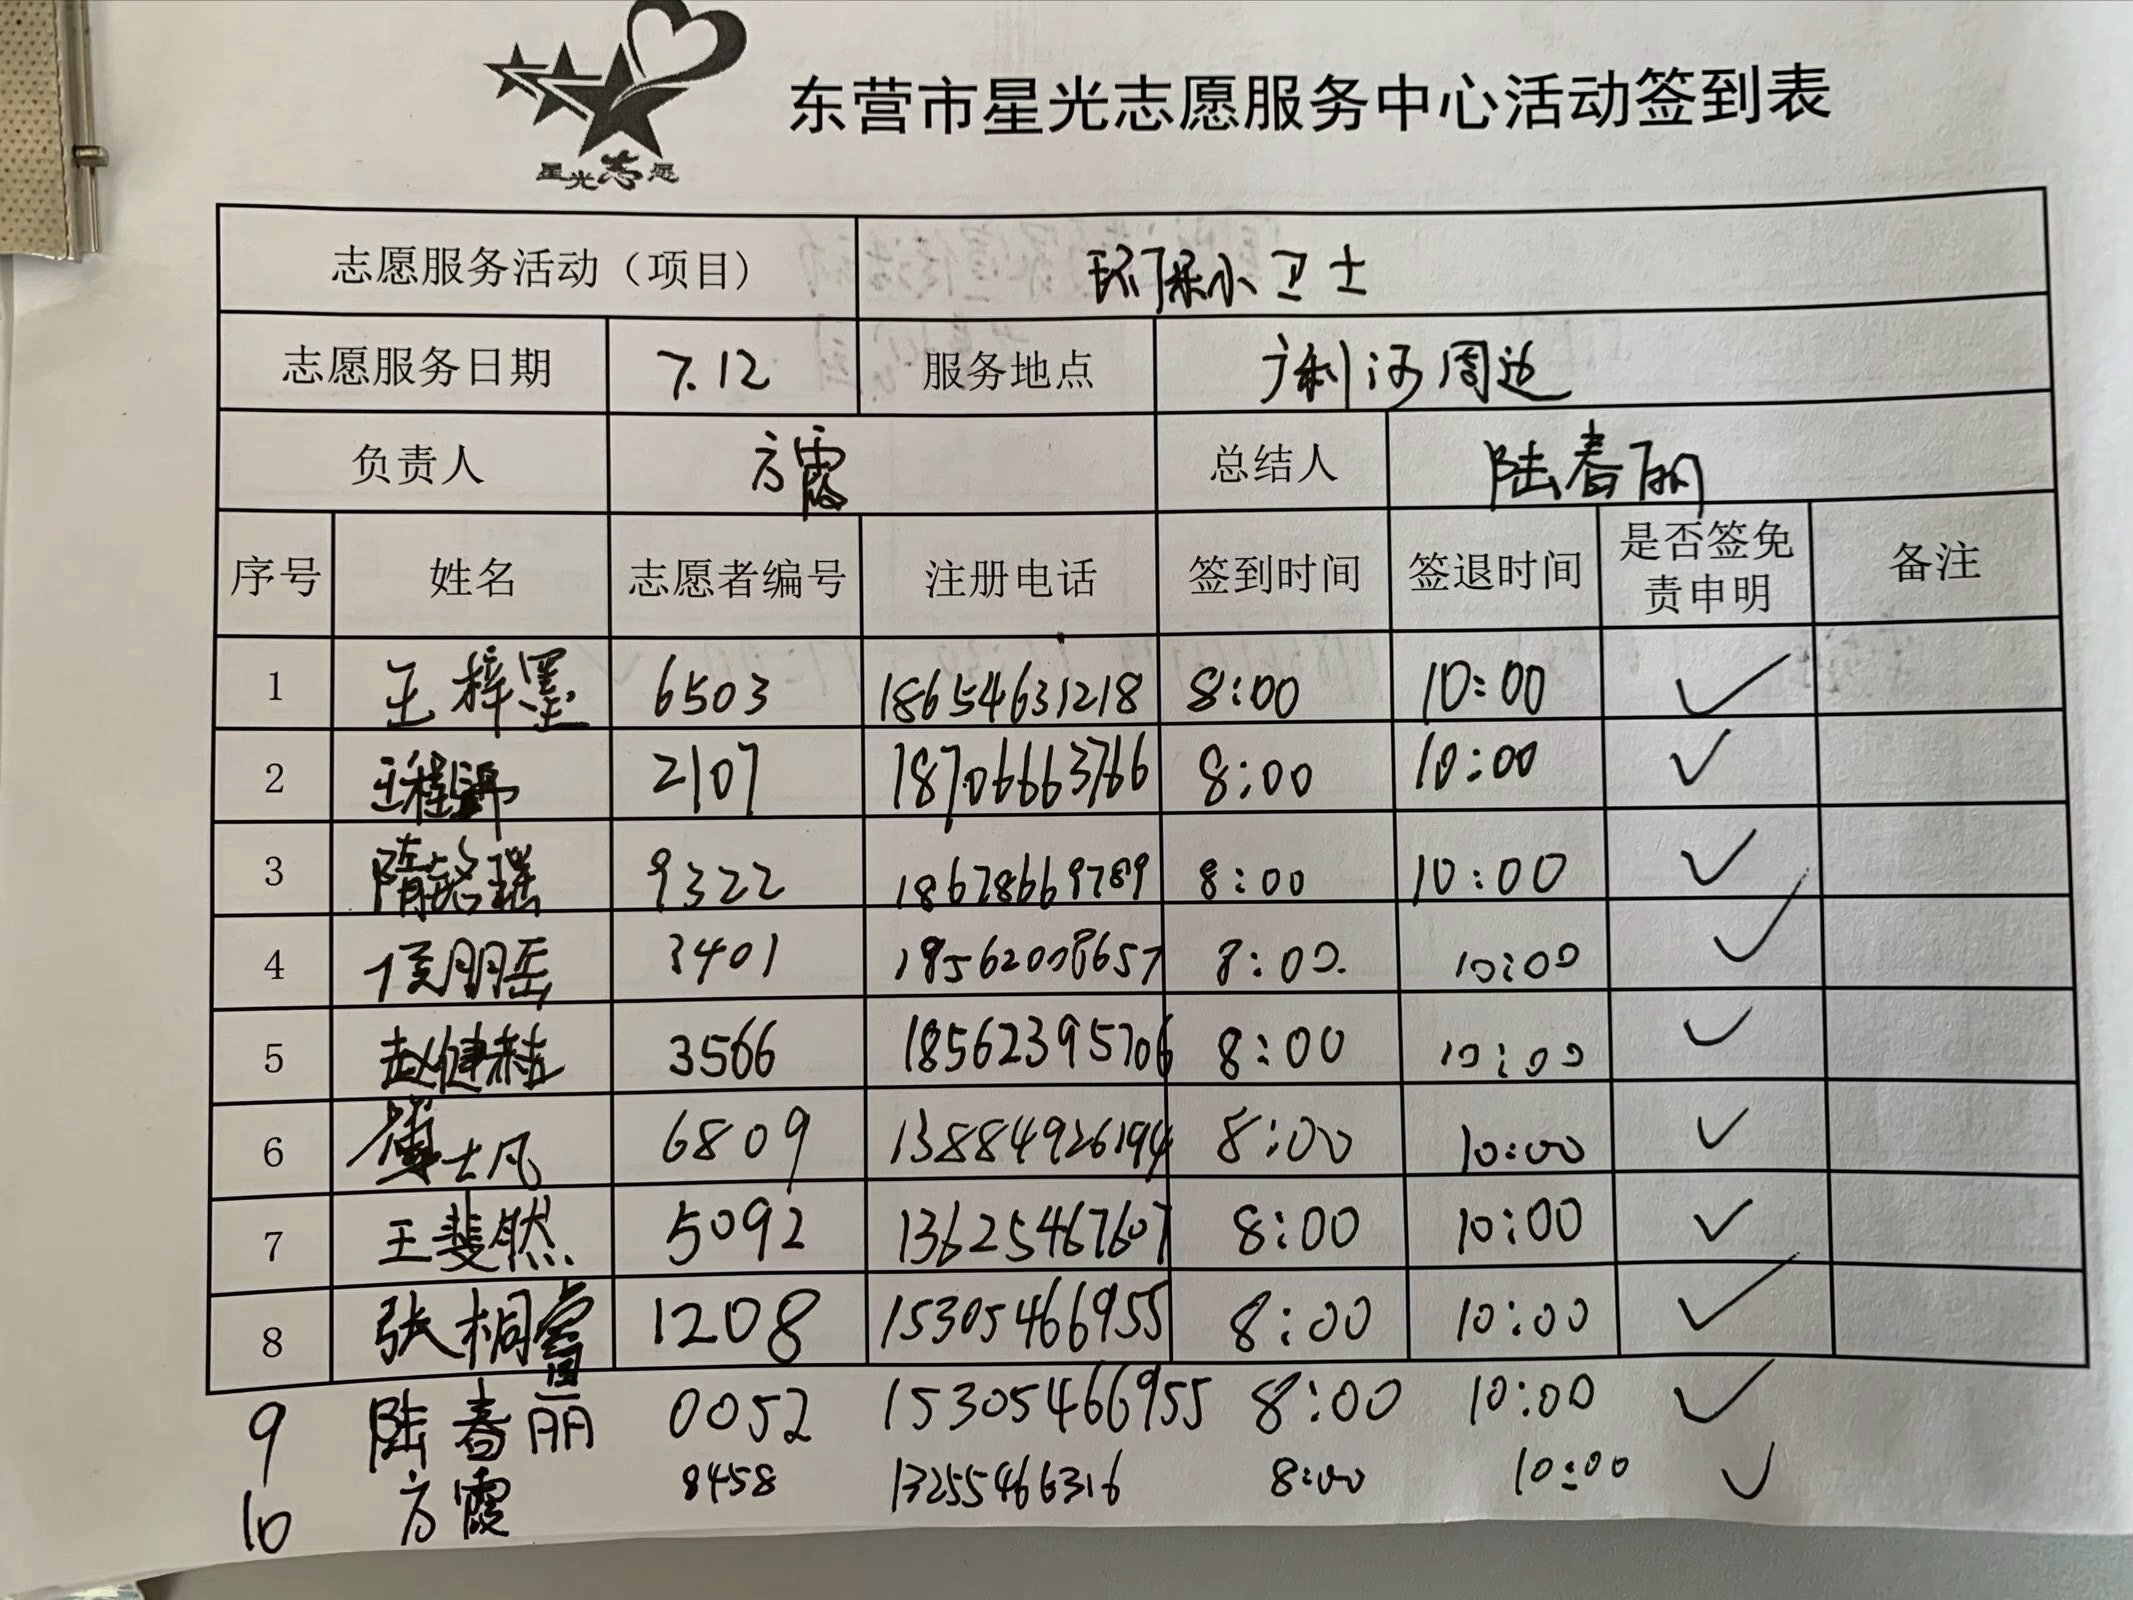 星光志愿
东营市星光志愿服务中心活动签到表
志愿服务活动（项目） 环保小卫士
志愿服务日期 7.12 服务地点 广利河周边
负责人 方霞 总结人 陆春丽
序号 姓名 志愿者编号 注册电话 签到时间 签退时间 是否签免责申明 备注
1 王梓墨 6503 18654631218 8:00 10:00 ✓
2 2107 18706663766 8:00 10:00 ✓
3 隋 瑶 9322 18678669789 8:00 10:00 ✓
4 侯朋岳 3401 18562008657 8:00 10:00 ✓
5 赵健赫 3566 18562395706 8:00 10:00 ✓
6 士凡 6809 13884926194 8:00 10:00 ✓
7 王斐然 5092 13625467607 8:00 10:00 ✓
8 张桐睿 1208 15305466955 8:00 10:00 ✓
9 陆春丽 0052 15305466955 8:00 10:00 ✓
10 方霞 8458 13255466316 8:00 10:00 ✓